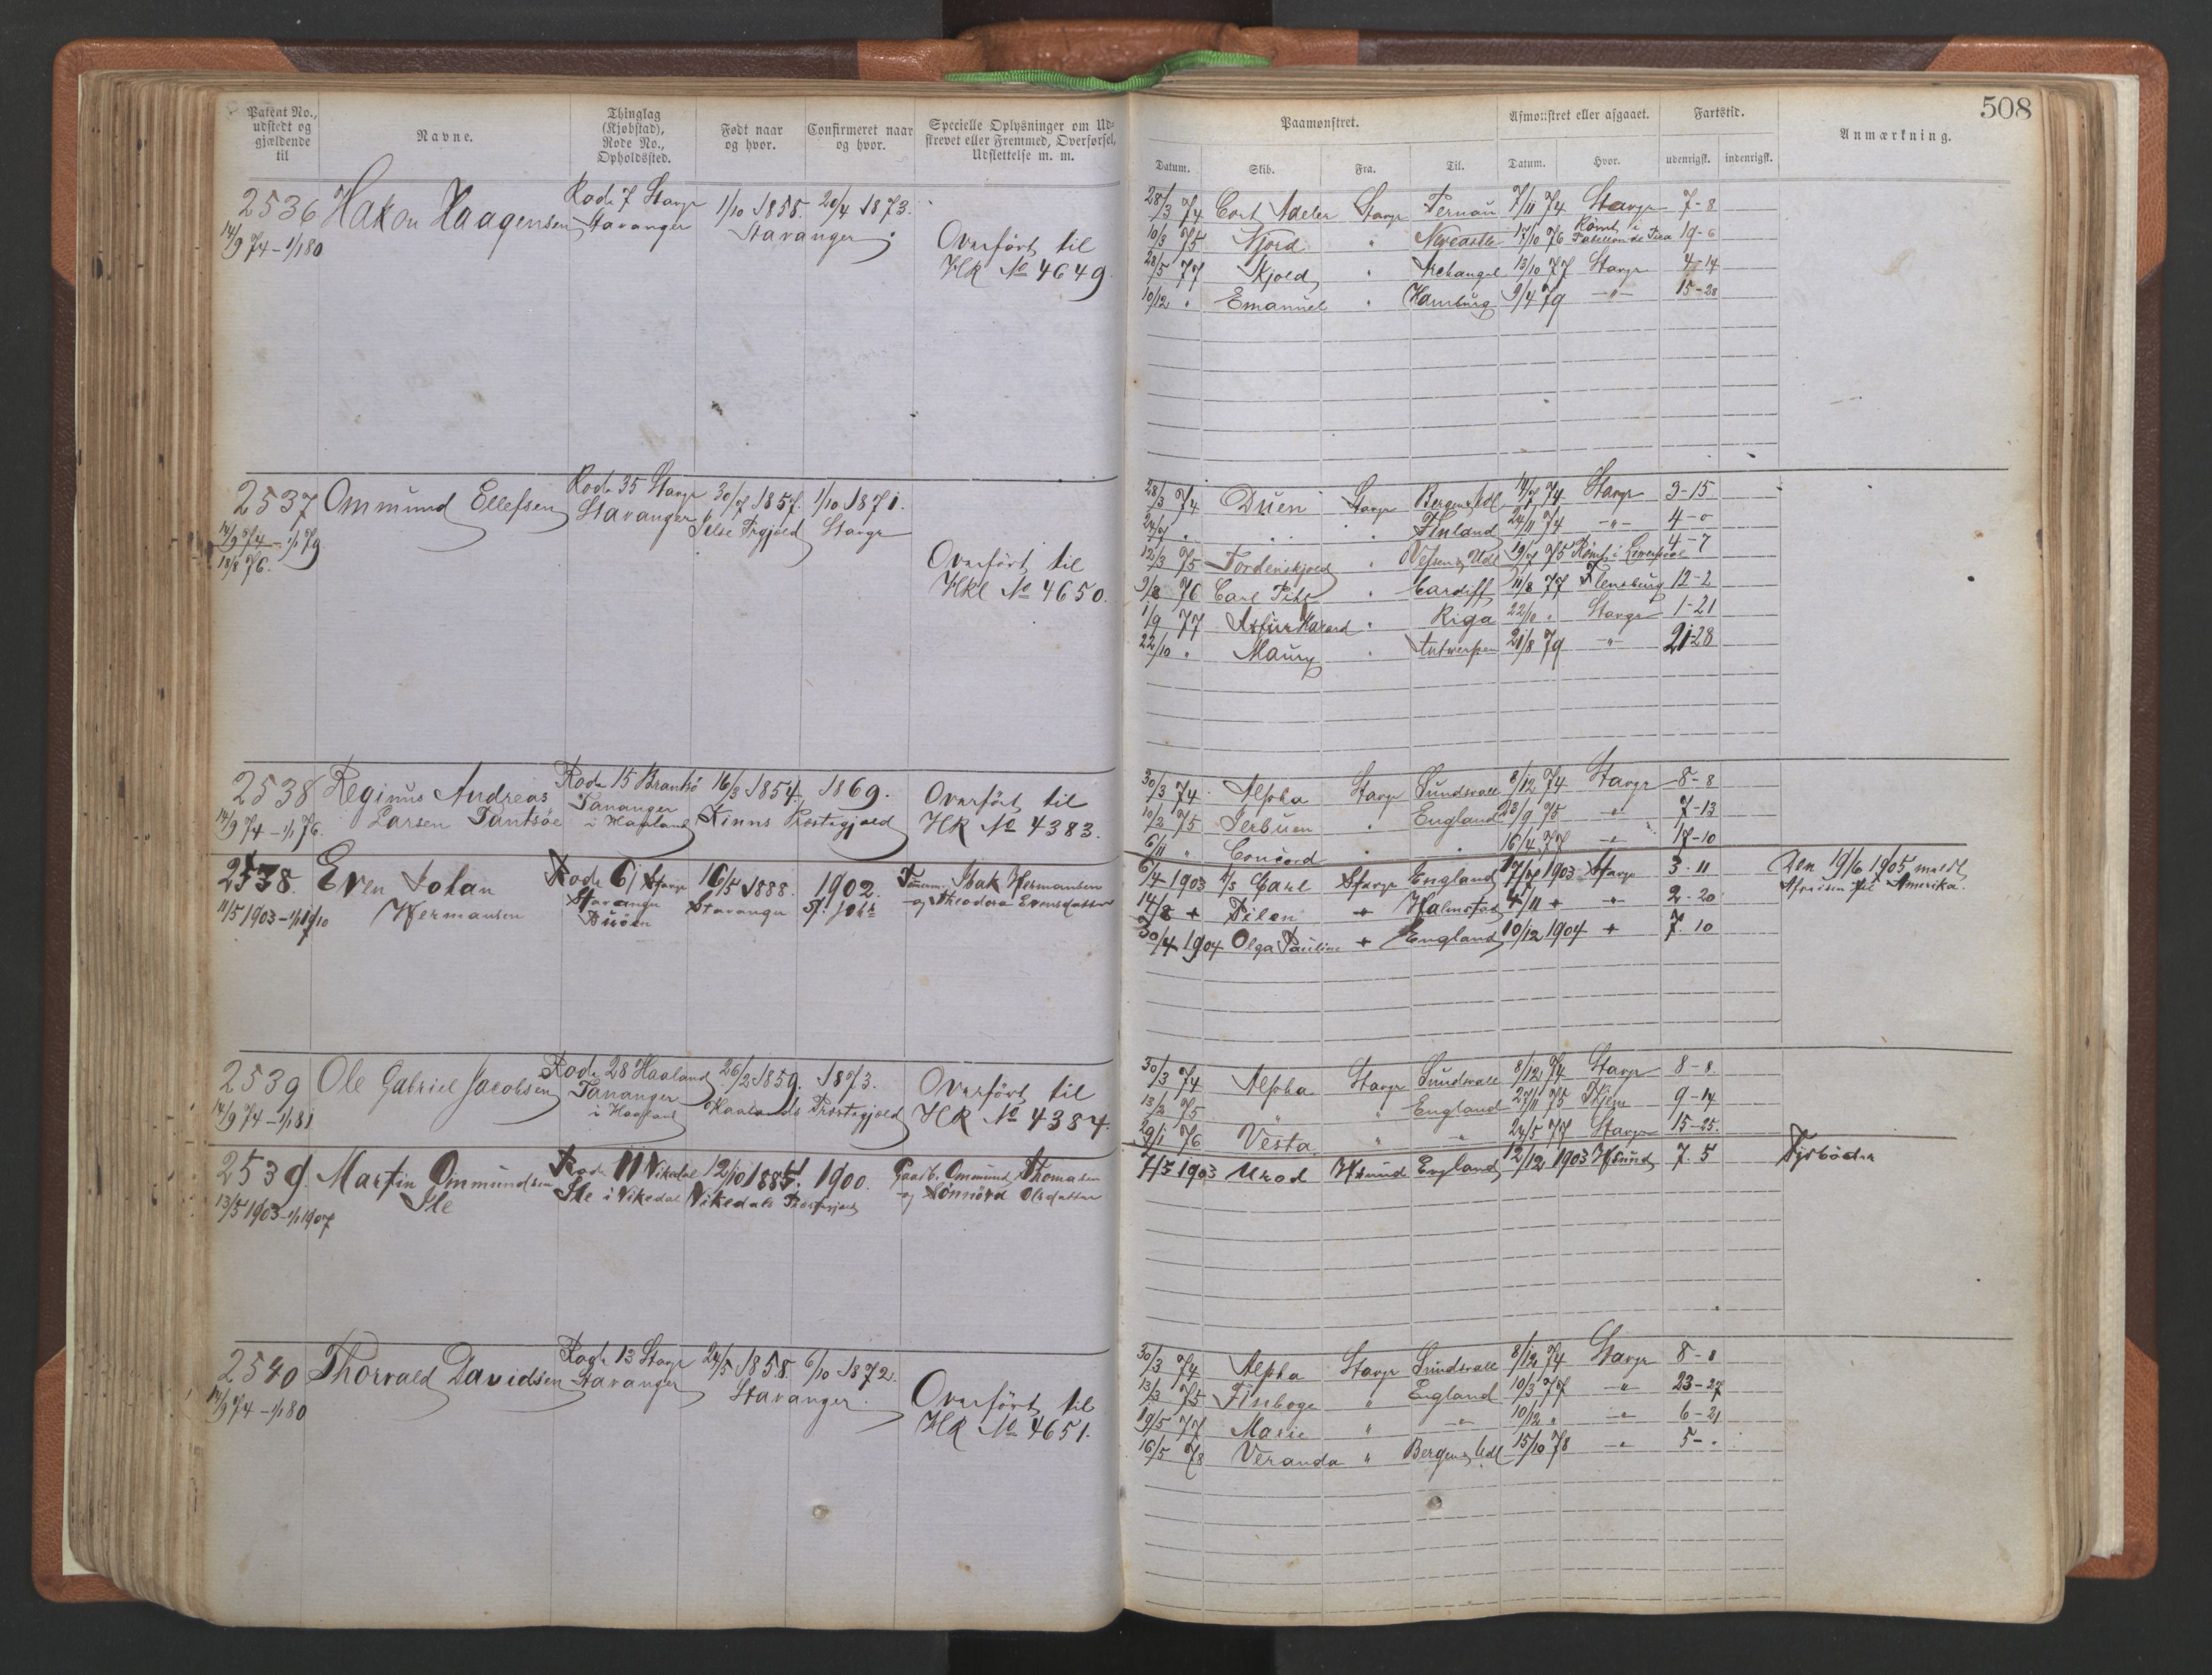 508
Patent No., udstedt og gjældende til
Navne.
Thinglag (Kjøbstad), Rode No., Opholdssted.
Født naar og hvor.
Confirmeret naar og hvor.
Specielle Oplysninger om Udskrevet eller Fremmed, Overførsel, Udslettelse m. m.
Paamønstret.
Afmønstret eller afgaaet.
Fartstid.
Anmærkning.
Datum. Skib. Fra. Til. Datum. Hvor. udenrigsk. indenrigsk.
2536 Hakon Haagensen Rode 7 Stavgr 1/10 1858. 20/4 1873.
14/9 74 - 1/1 80 Stavanger Stavanger
Overført til
HR No 4649.
28/3 74 Cort Adeler Stavgr Pernau 7/11 74 Stavgr 7-8
10/3 75 Njord " Newcastle 17/10 76 Rømt i 19-6
28/5 77 Skjold " Archangel 13/10 77 Stavgr 4-14
10/12 " Emanuel " Hamburg 9/4 79 -"- 15-28
2537 Ommund Ellefsen Rode 35 Stavgr 30/7 1857. 1/10 1871.
14/9 74 - 1/1 79 Stavanger Jelse Prgjeld Stavgr
18/8 76.
Overført til
HRl No 4650.
28/3 74 Duen Stavgr Bergen & Udl 14/7 74 Stavgr 3-15
24/7 " " " Finland 24/11 74 -"- 4-0
12/3 75 Tordenskjold " Vefsen & Udl 19/7 75 Rømt i Liverpool 4-7
9/8 76 Carl Pihl " Cardiff 11/8 77 Flensburg 12-2
1/9 77 " Riga 22/10 " Stavgr 1-21
22/10 " Maury " Antwerpen 21/8 79 -"- 21-28
2538 Reginus Andreas Rode 15 16/3 1854. 1869.
14/9 74 - 1/1 76. Larsen Tananger i Haaland Kinns Præstegjæld
Overført til
HR No 4383.
30/3 74 Alpha Stavgr Sundsvall 8/12 74 Stavgr 8-8
10/2 75 " England 23/9 75 -"- 7-13
6/11 " Concord " " 16/4 77 -"- 17-10
2538. Even Johan Rode 61 Stavgr 16/5 1888. 1902.
11/5 1903 - 1/1 1910 Hermansen Stavanger Stavanger St. Johs
Isak Hermansen
og Theodora Evensdatter
6/4 1903 S/S Carl Stavgr England 17/7 1903 Stavgr 3.11
Den 19/6 1905 meldt
Afreisen til Amerika.
14/8 + Pilen + Halmstad 4/11 + -"- 2-20
30/4 1904 Olga Pauline + England 10/12 1904 + 7.10
2539 Ole Gabriel Jacobsen Rode 28 Haaland 26/2 1859. 1873.
14/9 74 - 1/1 81 Tananger i Haaland Haalands Præstegjæld
Overført til
HR No 4384.
30/3 74 Alpha Stavgr Sundsvall 8/12 74 Stavgr 8-8
13/2 75 " " England 27/11 75 9-14
29/1 76 Vesta " -"- 24/5 77 Stavgr 15-25.
2539. Martin Ommundsen Rode 11 Vikedal 12/10 1885. 1900.
13/5 1903 - 1/1 1907 Ile Ile i Vikedal Vikedals Præstegjæld
Gaardb. Ommund Thomasen
og Olsdatter
1903 Urod Hsund England 12/12 1903 Hsund 7.5
2540 Thorvald Davidsen Rode 13 Stavgr 24/5 1858. 6/10 1872.
14/9 74 - 1/1 80 Stavanger Stavanger.
Overført til
HR No 4651.
30/3 74 Alpha Stavgr Sundsvall 8/12 74 Stavgr 8-8
13/3 75 Finboge " England 10/3 77 -"- 23-27
19/5 77 Marie " -"- 10/12 " -"- 6-21
16/5 78 Veranda " Bergen & Udl 15/10 78 -"- 5-"